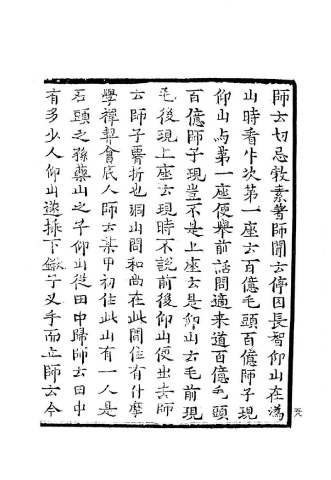 師云切忌敎素著師聞云停囚長智仰山在溈
山時看作次第一座云百億毛頭百億師子現
仰山与第一座便舉前話問適来道百億毛頭
百億師子現豈不是上座云是仰山云毛前現
毛後現上座云現時不說前後仰山便出去師
云師子䙝折也洞山問和尚在此間住有什摩
學禪契會底人師云某甲初住此山有一人是
石頭之孫藥山之子仰山從田中歸師云田中
有多少人仰山遂揷下鍬子叉手而立師云今